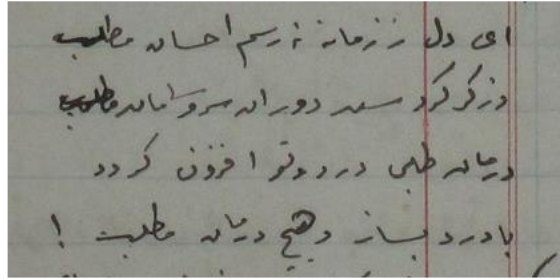 ای دل ز زمانه رسم احسان مطلب
دوران سر و سامان مطلب
درمان طلبی درد تو افزون گردد
با درد بساز و هیچ درمان مطلب !